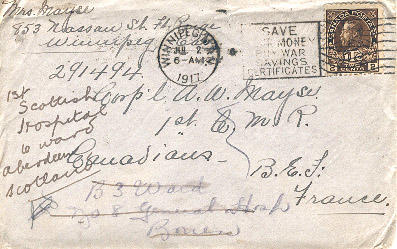 Mrs. Mayse
853 Nassau St. Ft. Rouge
Winnipeg
WINNIPEG MAN.
JUL 2
6-AM
1917
SAVE
MONEY
BUY WAR
SAVINGS
CERTIFICATES
291494.
Corp'l A. W. Mayse
1st C M R.
Canadians
B.E.F.
France.
1st
Scottish
Hospital
6 ward
Aberdeen
Scotland
B3 Ward
No 8 General Hosp